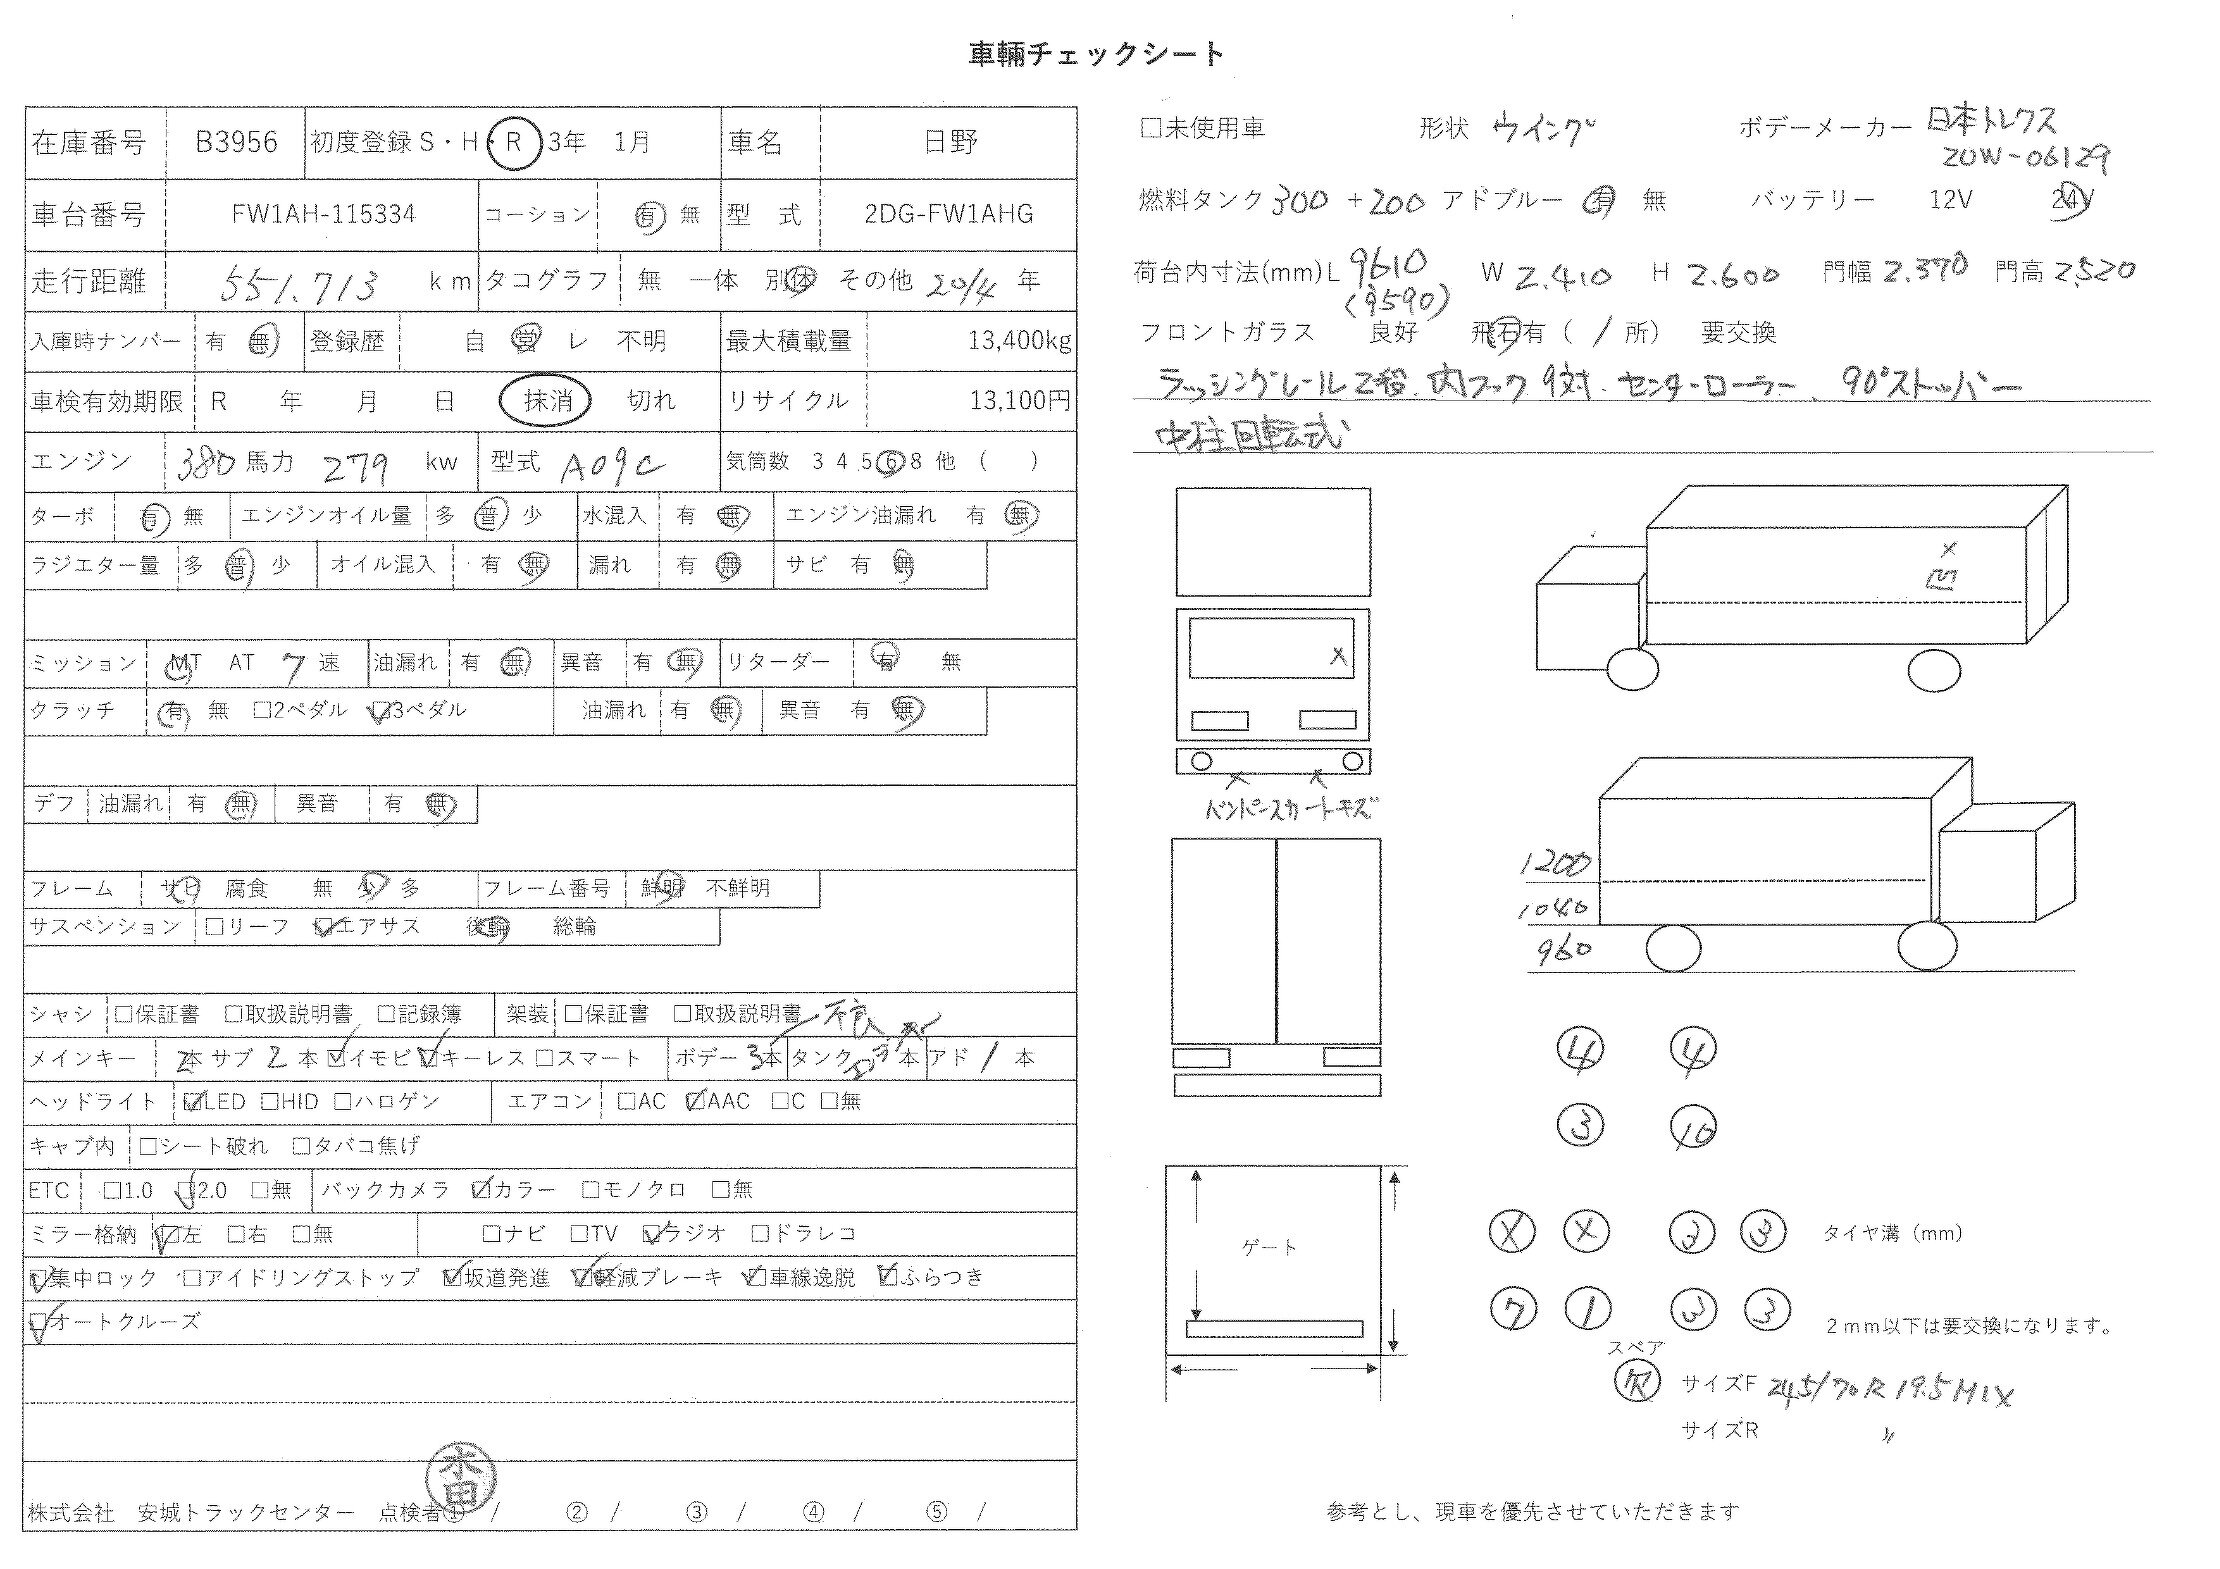 車輛チェックシート
在庫番号 B3956 初度登録 S・H・R 3年 1月 車名 日野
車台番号 FW1AH-115334 コーション 有 無 型 式 2DG-FW1AHG
走行距離 551.713 km タコグラフ 無 一体 別体 その他 20/4 年
入庫時ナンバー 有 無 登録歴 自 営 レ 不明 最大積載量 13,400kg
車検有効期限 R 年 月 日 抹消 切れ リサイクル 13,100円
エンジン 380 馬力 279 kw 型式 A09C 気筒数 3 4 5 6 8 他 ( )
ターボ 有 無 エンジンオイル量 多 普 少 水混入 有 無 エンジン油漏れ 有 無
ラジエター量 多 普 少 オイル混入 有 無 漏れ 有 無 サビ 有 無
ミッション MT AT 7 速 油漏れ 有 無 異音 有 無 リターダー 有 無
クラッチ 有 無 □2ペダル ☑3ペダル 油漏れ 有 無 異音 有 無
デフ 油漏れ 有 無 異音 有 無
フレーム サビ 腐食 無 少 多 フレーム番号 鮮明 不鮮明
サスペンション □リーフ ☑エアサス 後輪 総輪
シャシ □保証書 □取扱説明書 □記録簿 架装 □保証書 □取扱説明書
不良
メインキー 2本 サブ 2 本 ☑イモビ ☑キーレス □スマート ボデー 3本 タンク 本 アド 1 本
ヘッドライト ☑LED □HID □ハロゲン エアコン □AC ☑AAC □C □無
キャブ内 □シート破れ □タバコ焦げ
ETC □1.0 ☑2.0 □無 バックカメラ ☑カラー □モノクロ □無
ミラー格納 ☑左 □右 □無 □ナビ □TV ☑ラジオ □ドラレコ
☑集中ロック □アイドリングストップ ☑坂道発進 ☑軽減ブレーキ ☑車線逸脱 ☑ふらつき
☑オートクルーズ
株式会社 安城トラックセンター 点検者① / ② / ③ / ④ / ⑤ /
□未使用車 形状 ウイング ボデーメーカー 日本トレクス
ZUW-06129
燃料タンク 300 +200 アドブルー 有 無 バッテリー 12V 24V
荷台内寸法(mm) L 9610 W 2.410 H 2.600 門幅 2.370 門高 2,520
(9590)
フロントガラス 良好 飛石有 ( 1 所) 要交換
ラッシングレール2段. 内フック 9対. センターローラー、90°ストッパー
中柱回転式
×
凹
×
× ×
バンパースカートキズ
1200
1040
960
ゲート
4 4
3 10
× × 3 3 タイヤ溝（mm）
7 1 3 3 2mm以下は要交換になります。
スペア
欠 サイズF 245/70R 19.5 MIX
サイズR 〃
参考とし、現車を優先させていただきます